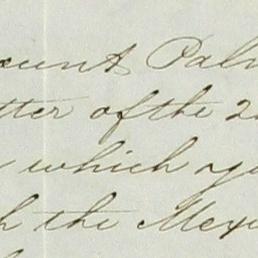 count Palm
tter of the 2
which yo
h the Mexi